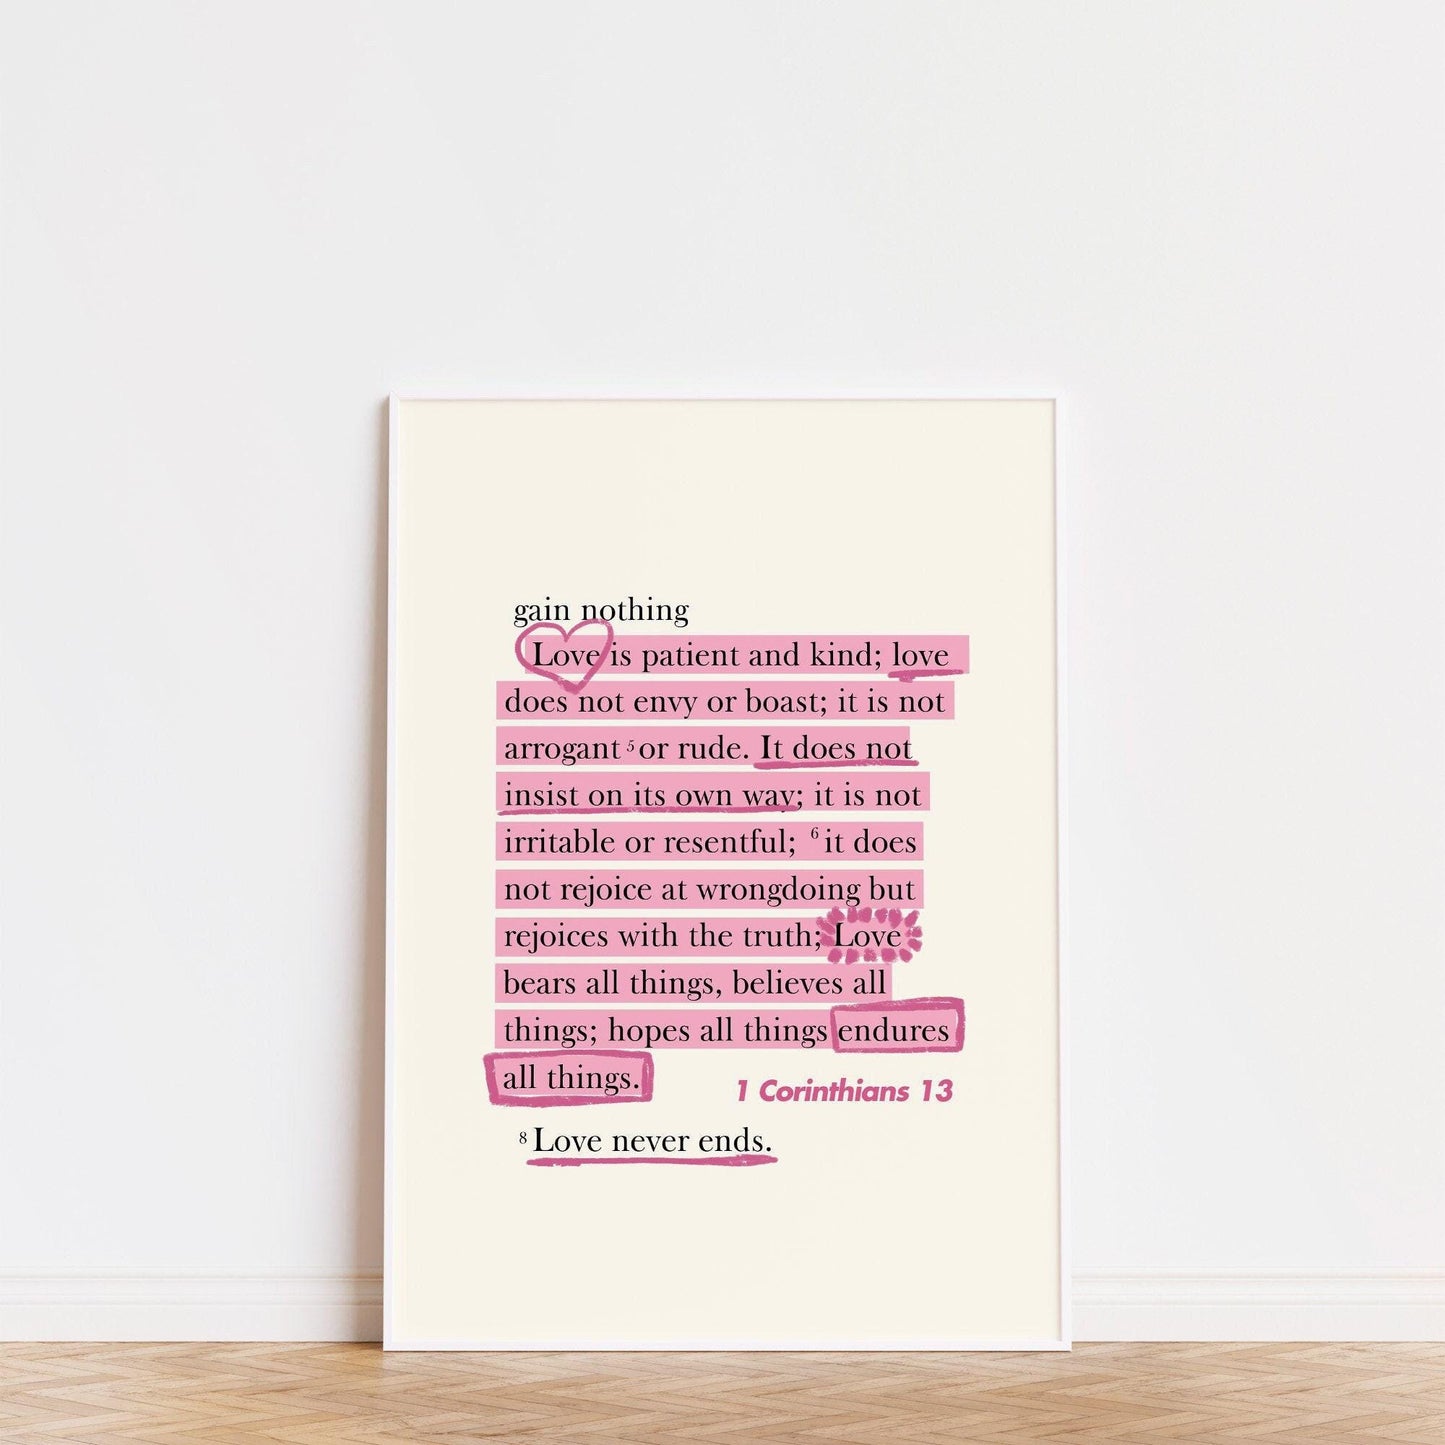 gain nothing
Love is patient and kind; love
does not envy or boast; it is not
arrogant 5 or rude. It does not
insist on its own way; it is not
irritable or resentful; 6 it does
not rejoice at wrongdoing but
rejoices with the truth; Love
bears all things, believes all
things; hopes all things endures
all things.
1 Corinthians 13
8 Love never ends.